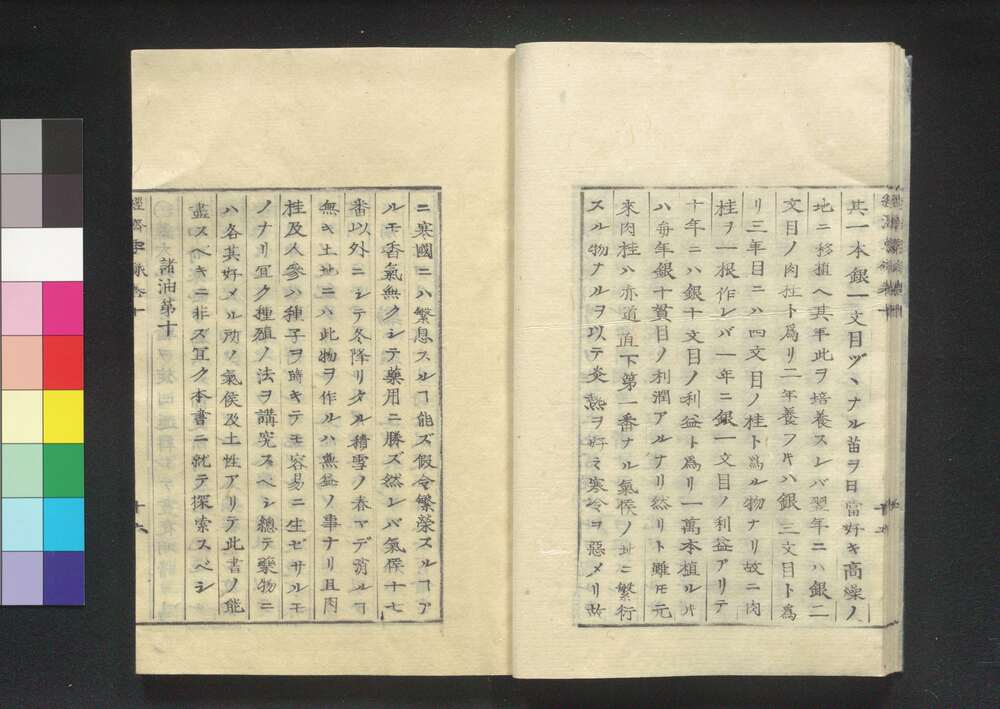 其一本銀一文目ヅヽナル苗ヲ日當好キ高燥ノ
地ニ移植ヘ其年此ヲ培養スレバ翌年ニハ銀二
文目ノ肉桂ト爲リ二年養フ片ハ銀三文目ト爲
リ三年目ニハ四文目ノ桂ト爲ル物ナリ故ニ肉
桂ヲ一根作レバ一年ニ銀一文目ノ利益アリテ
十年ニハ銀十文目ノ利益ト爲リ一萬本植ル片
ハ毎年銀十貫目ノ利潤アルナリ然リト雖モ元
來肉桂ハ赤道直下第一番ナル氣候ノ地ニ繁行
スル物ナルヲ以テ炎熱ヲ好ミ寒冷ヲ惡メリ故
ニ寒國ニハ繁息スルヿ能ズ假令繁榮スルヿア
ルモ香氣無クシテ藥用ニ勝ズ然レバ氣候十七
番以外ニシテ冬降リタル積雪ノ春マデ消ルヿ
無キ土地ニハ此物ヲ作ルハ無益ノ事ナリ且肉
桂及人參ハ種子ヲ蒔キテモ容易ニ生ゼサルモ
ノナリ宜ク種殖ノ法ヲ講究スベシ總テ藥物ニ
ハ各其好メル所ノ氣侯及土性アリテ此書ノ能
盡スベキニ非ズ宜ク本書ニ就テ探索スベシ
諸油第十
十六